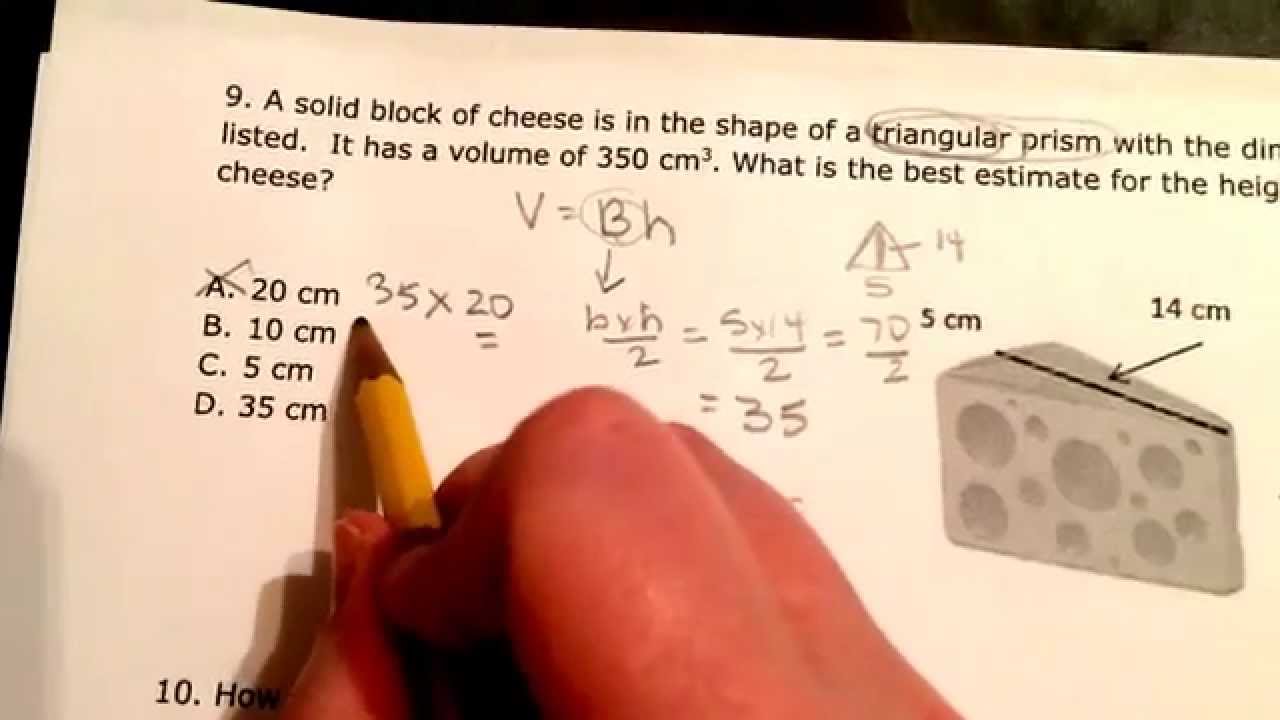 9. A solid block of cheese is in the shape of a triangular prism with the
listed. It has a volume of 350 cm³. What is the best estimate for the
cheese?
V = Bh
14
5
A. 20 cm 35 x 20
=
B. 10 cm
C. 5 cm
D. 35 cm
bxh/2 = 5x14/2 = 70/2
= 35
5 cm
14 cm
10. How